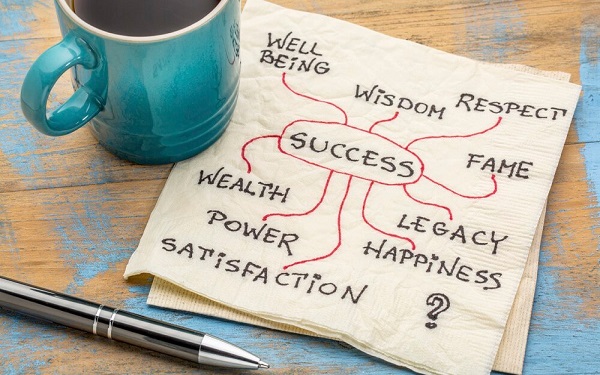 WELL
BEING
WISDOM
RESPECT
SUCCESS
FAME
WEALTH
LEGACY
POWER
HAPPINESS
SATISFACTION
?